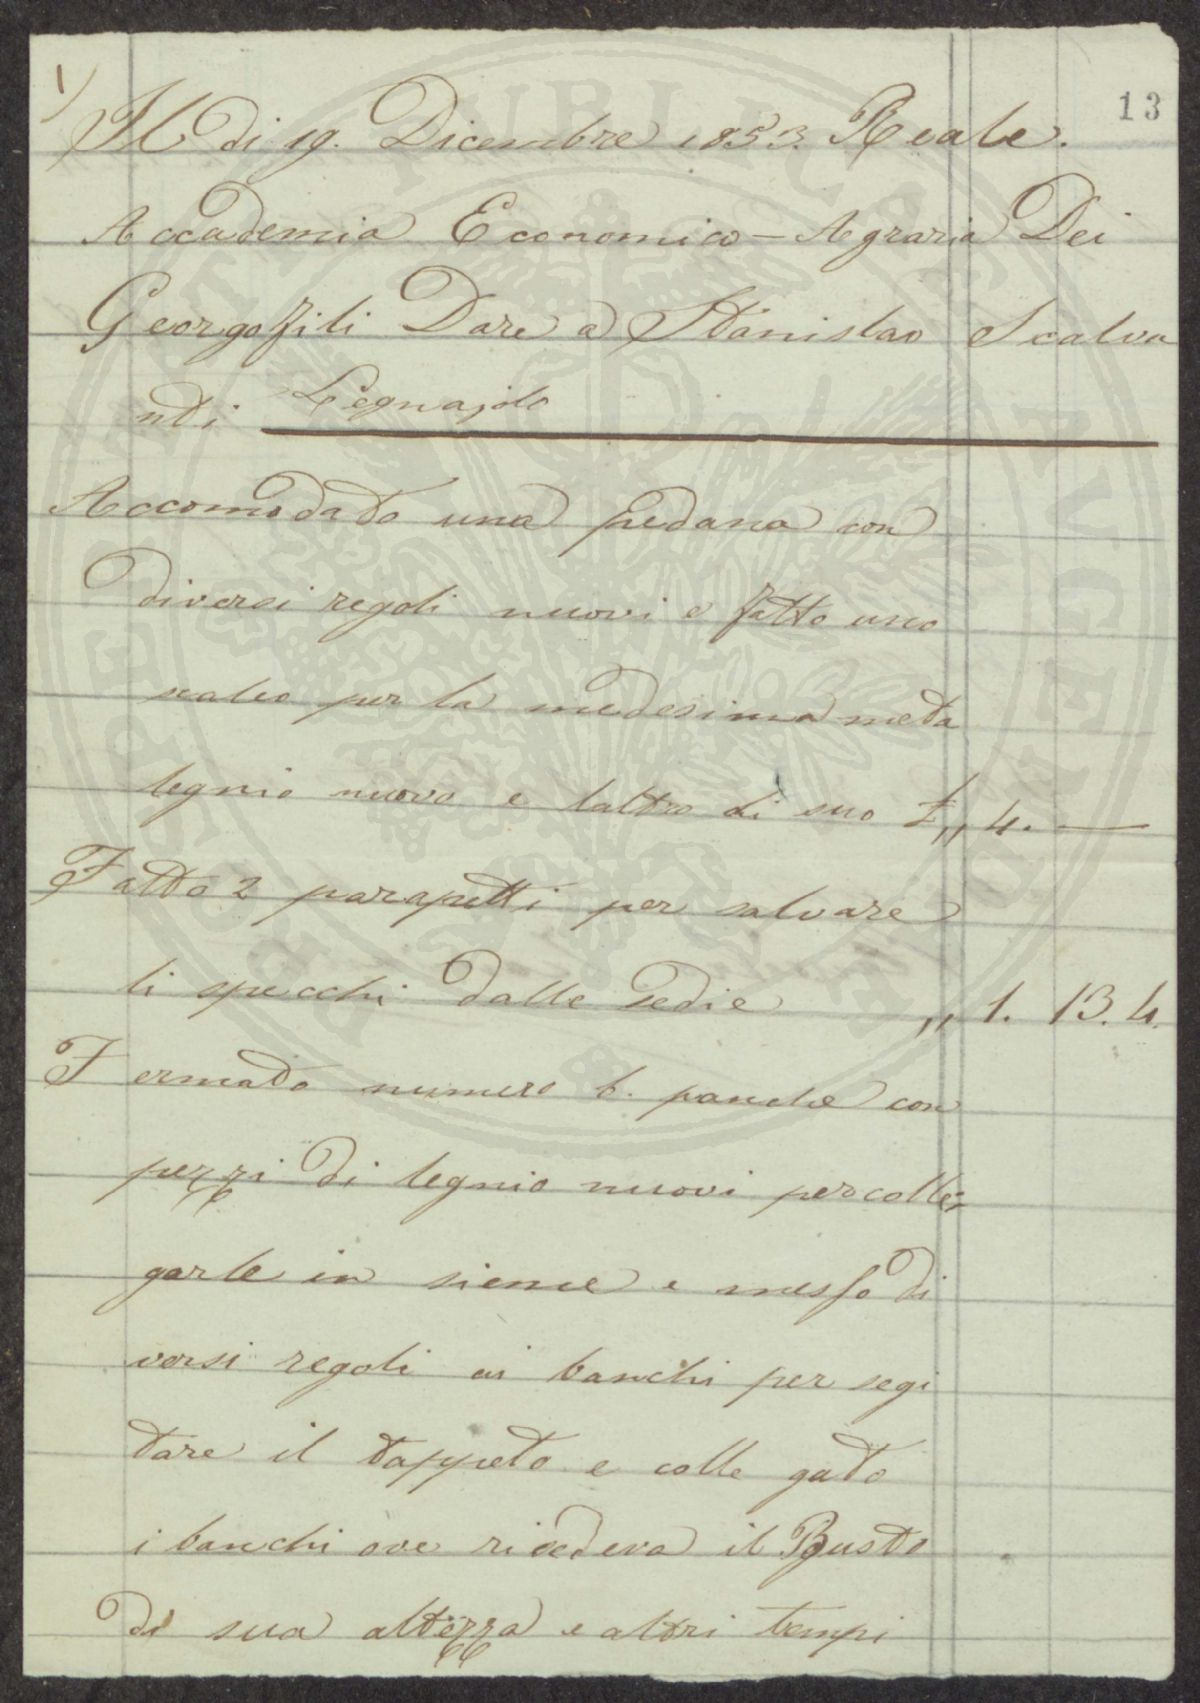 1)
13
Il di 19. Dicembre 1853. Reale.
Accademia Economico-Agraria Dei
Georgofili Dare a Stanislao Scalva
ndi Legnajolo
Accomodato una pedana con
diversi regoli nuovi e fatto uno
scaleo per la medesima meta
legnio nuovo e laltro di suo £ ,, 4. —
Fatto 2 parapetti per salvare
li specchi dalle sedie ,, 1. 13. 4.
Fermato numero 6. panche con
pezzi di legnio nuovi per colle=
garle in sieme e messo di
versi regoli ai banchi per segi
tare il tappeto e colle gato
i banchi ove risedeva il Busto
di sua altezza e altri tempi